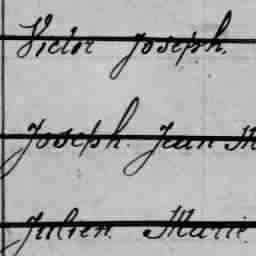 Victor Joseph.
Joseph. Jean M
Julien. Marie